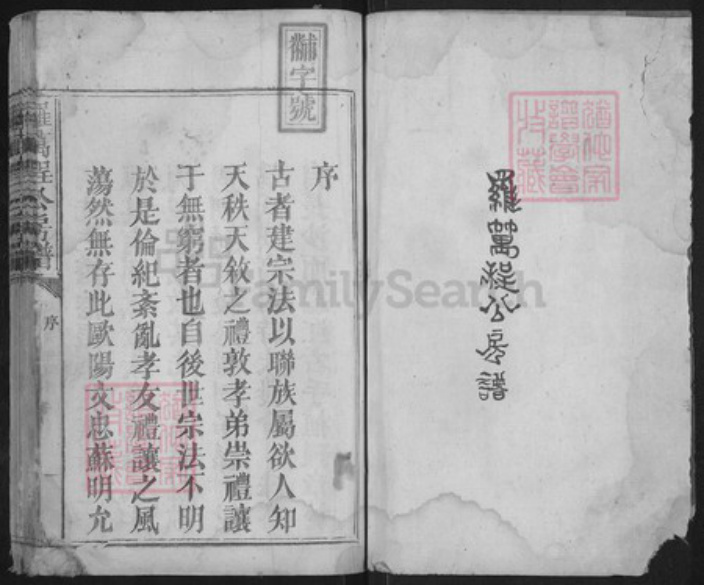 羅萬程公房譜
黼字號
序
古者建宗法以聯族屬欲人知
天秩天敘之禮敦孝弟崇禮讓
于無窮者也自後世宗法不明
於是倫紀紊亂孝友禮讓之風
蕩然無存此歐陽文忠蘇明允
羅萬程公房譜
序
FamilySearch